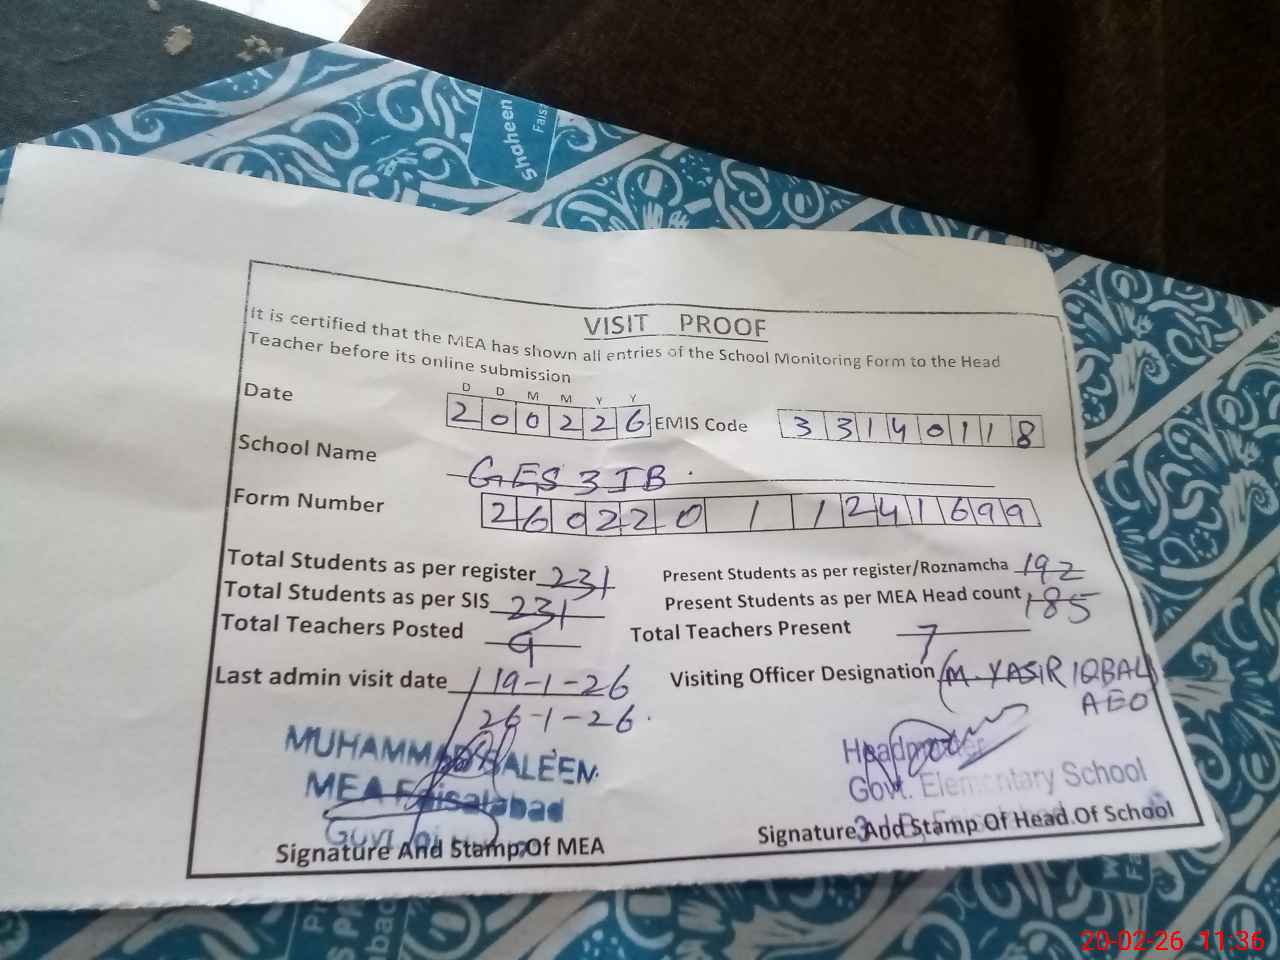 shaheen
Faisa
VISIT PROOF
It is certified that the MEA has shown all entries of the School Monitoring Form to the Head
Teacher before its online submission
D D M M Y Y
Date 2 0 0 2 2 6 EMIS Code 3 3 1 4 0 1 1 8
School Name GES 3 JB
Form Number 2 6 0 2 2 0 1 1 2 4 1 6 9 9
Total Students as per register 231 Present Students as per register/Roznamcha 192
Total Students as per SIS 231 Present Students as per MEA Head count 185
Total Teachers Posted 9 Total Teachers Present 7
Last admin visit date 19-1-26 Visiting Officer Designation M. YASIR IQBAL
26-1-26. AEO
MUHAMMAD SALEEM
MEA Faisalabad
Govt. of
Headmaster
Govt. Elementary School
Signature And Stamp Of MEA Signature And Stamp Of Head Of School
20-02-26 11:36